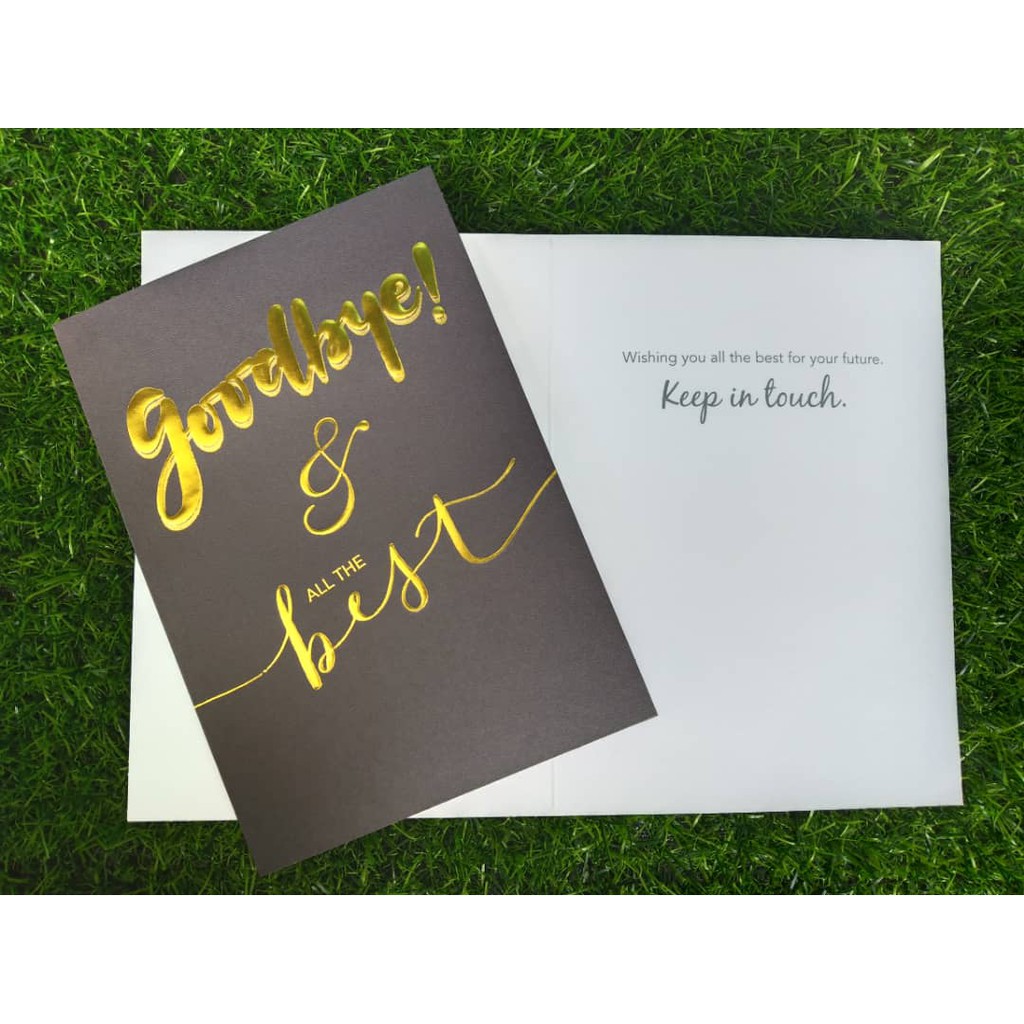 Goodbye!
&
ALL THE
best
Wishing you all the best for your future.
Keep in touch.